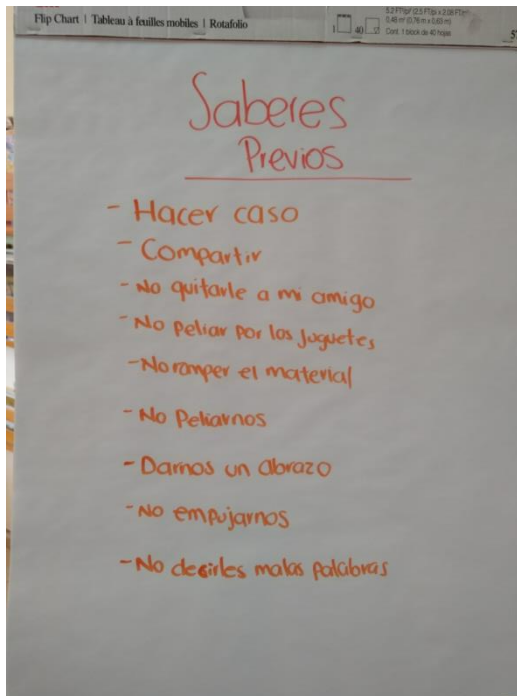 Flip Chart | Tableau à feuilles mobiles | Rotafolio
Saberes
Previos
- Hacer caso
- Compartir
- No quitarle a mi amigo
- No peliar por los juguetes
- No romper el material
- No Peliarnos
- Darnos un abrazo
- No empujarnos
- No decirles malas palabras